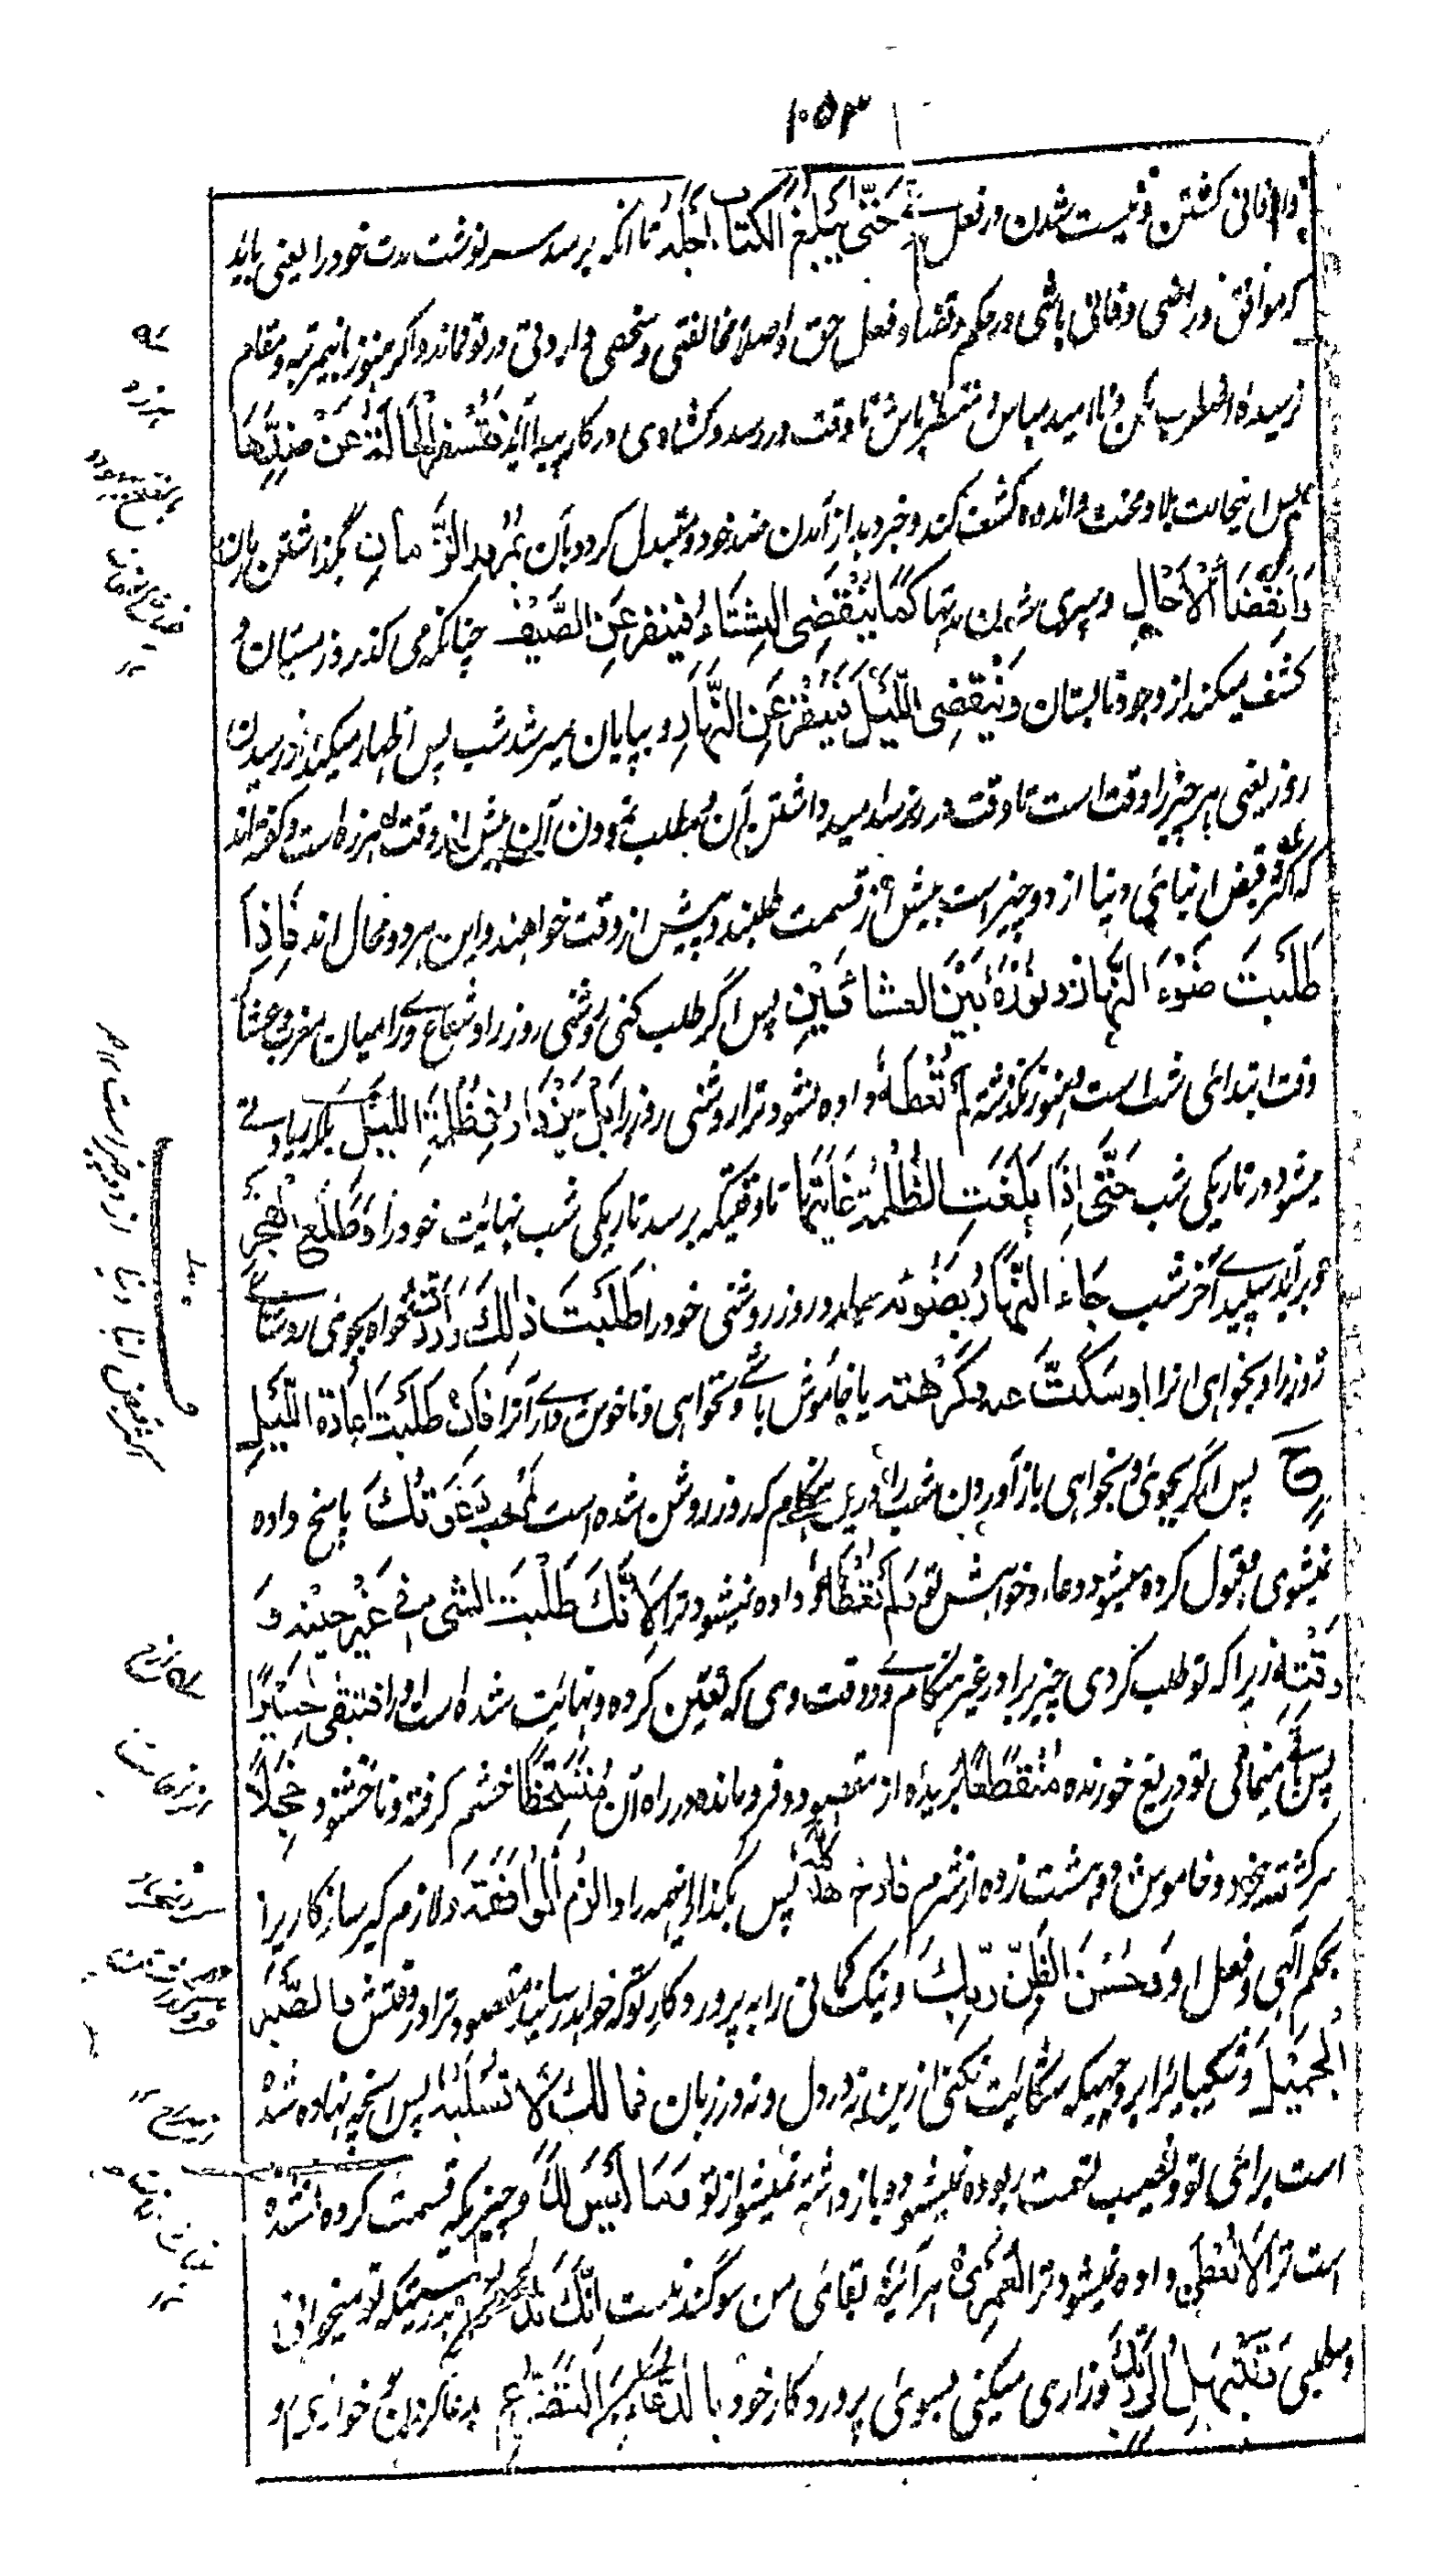 ۱۰۵۳
و از فانی گشتن و نیست شدن در فعل وے حَتّٰى يَبْلُغَ الْكِتَابُ اَجَلَهٗ تا آنکه برسد سرنوشت مدت خود را یعنی باید
که موافق و راضی و فانی باشی در حکم و قضا و فعل حق و اصلا مخالفتی و در تو نماند و اگر هنوز باین مرتبه و مقام
نرسیدۀ اضطراب مکن و ناامید مباش و منتظر باش تا وقت در رسد و کشادی در کار پیدا آید فَتُسْفِرُ الْحَالَةُ عَنْ ضِدِّهَا
پس این حالت بلا و محنت و اندوه کشف کند و خبر دهد از آمدن ضد خود و متبدل گردد بآن بِمُرُوْرِ الزَّمَانِ بگذاشتن زمان
وَانْقِضَاءِ الْاٰجَالِ و سپری شدن مدتها كَمَا يَنْقَضِى الشِّتَاءُ فَيُسْفِرُ عَنِ الصَّيْفِ چنانکه می گذرد زمستان و
کشف میکند از وجود تابستان وَيَنْقَضِى اللَّيْلُ فَيُسْفِرُ عَنِ النَّهَارِ و بپایان میرسد شب پس اظهار میکند از رسیدن
روز یعنی هر چیز را وقت است تا وقت در نرسد امید داشتن آن و طلب نمودن آن پیش از وقت هرزه است و گفته اند
که اکثر قبض ابنای دنیا از دو چیز است بیش از قسمت طلبند و پیش از وقت خواهند و این هر دو محال اند فَاِذَا
طَلَبْتَ ضَوْءَ النَّهَارِ وَنُوْرَهٗ بَيْنَ الْعِشَائَيْنِ پس اگر طلب کنی روشنی روز را و شعاع وے را میان مغرب و عشا که
وقت ابتدای شب است هنوز نگذشته لَمْ تُعْطَهٗ داده نشود ترا روشنی روز را بَلْ يَزْدَادُ فِى ظُلْمَةِ اللَّيْلِ بلکه زیادتے
میشود در تاریکی شب حَتّٰى اِذَا بَلَغَتِ الظُّلْمَةُ غَايَتَهَا تا وقتیکه برسد تاریکی شب نهایت خود را وَطَلَعَ الْفَجْرُ
و برآید سپیدے آخر شب جَاءَ النَّهَارُ بِضَوْئِهٖ بیاید روز بروشنی خود را طَلَبْتَ ذٰلِكَ وَاَرَدْتَهٗ خواه بجوئی روشنائے
روز را و بخواهی آنرا اَوْ سَكَتَّ عَنْهُ وَكَرِهْتَهٗ یا خاموش باشے و نخواهی و ناخوش داری آنرا فَاِنْ طَلَبْتَ اِعَادَةَ اللَّيْلِ
ح پس اگر بجوئی و بخواهی باز آوردن شب را درین هنگام که روز روشن شده است لَمْ تُجَبْ دَعْوَتُكَ پاسخ داده
نمیشوی و قبول کرده نمیشود دعا و خواهش تو وَلَمْ تُعْطَهٗ و داده نمیشود ترا لِاَنَّكَ طَلَبْتَ الشَّىْءَ فِے غَيْرِ حِيْنِهٖ وَ
وَقْتِهٖ زیرا که تو طلب کردی چیز را در غیر هنگام وے و وقت وی که تعین کرده و نهایت شده است او را فَتَبْقٰى حَسِيْرًا
پس باقی میمانی تو دریغ خورنده مُنْقَطِعًا بریده از مقصود و فرو مانده در راه آن مُتَسَخِّطًا خشم گرفته و ناخشنود خَجِلًا
سرگشته بیخود و خاموش و دهشت زده از شرم فَاَرِحْ هٰذَا كُلَّهٗ پس بگذار این همه را وَالْزَمِ الْمُوَافَقَةَ و لازم گیر سازگاری را
بحکم الٰهی و فعل او وَحُسْنَ الظَّنِّ بِرَبِّكَ و نیک گمانی را به پروردگار تو که خواهد رسانید مقصود ترا در وقتش وَالصَّبْرَ
الْجَمِيْلَ و شکیبائی را بر وجهیکه شکایت نکنی ازین نه در دل و نه در زبان فَمَا لَكَ لَا تُسْلَبُهٗ پس آنچه نهاده شده
است برای تو و نصیب قسمت ربوده نمیشود و باز داشته نمیشود از تو وَمَا لَيْسَ لَكَ و چیزیکه قسمت کرده نشده
است ترا لَا تُعْطٰى داده نمیشود ترا لَعَمْرِىْ هر آئینه بقای من سوگند منست اِنَّكَ تَدْعُوْا بدرستیکه تو میخوانی
و میطلبی وَتَبْتَهِلُ اِلٰى رَبِّكَ و زاری میکنی بسوی پروردگار خود بِالدُّعَاءِ وَالتَّضَرُّعِ بدعا کردن و خواری و
اکثر قبض ابنا دنیا از دو چیز است